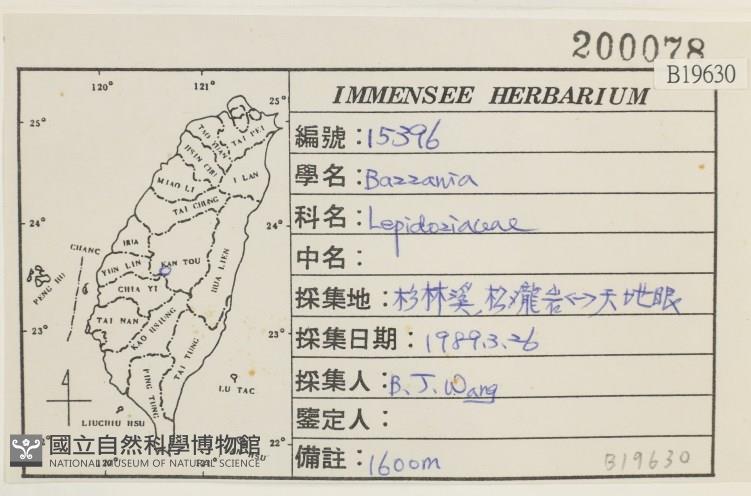 200078
B19630
IMMENSEE HERBARIUM
編號：15396
學名：Bazzania
科名：Lepidoziaceae
中名：
採集地：杉林溪,松瀧岩<->天地眼
採集日期：1989.3.26
採集人：B.J.Wang
鑒定人：
備註：1600m
B19630
120° 121°
25° 25°
TAO YUAN TAI PEI
HSIN CHU
MIAO LI I LAN
TAI CHUNG
24° 24°
CHANG HUA
YUN LIN NAN TOU
HUA LIEN
PENG HU
CHIA YI
TAI NAN
KAO HSIUNG
23° 23°
TAI TUNG
PING TUNG
LU TAO
LIUCHIU HSU
22°
120° 121°
HSU
國立自然科學博物館
NATIONAL MUSEUM OF NATURAL SCIENCE